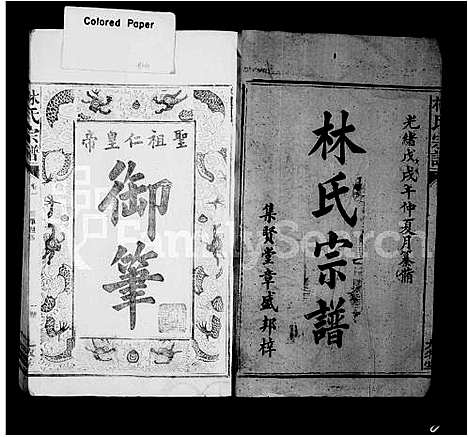 Colored Paper
光緒戊戌年仲夏月
林氏宗譜
集賢堂章盛邦梓
聖祖仁皇帝
御筆
林氏宗譜
FamilySearch